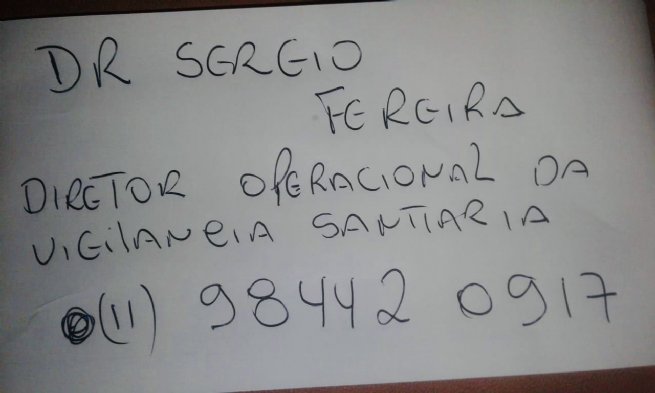 DR SERGIO
FEREIRA
DIRETOR OPERACIONAL DA
VIGILANCIA SANTIARIA
(11) 98442 0917